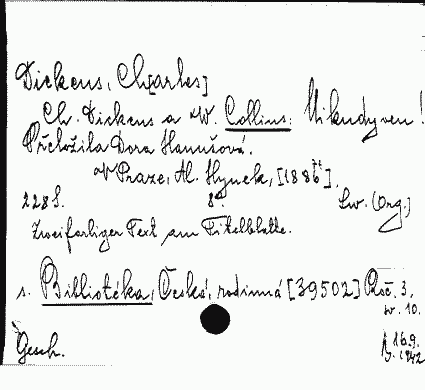 Dickens, Ch[arles]
Ch. Dickens a W. Collins: Nikudy ven!
Přeložila Dora Hanušová.
V Praze, Al. Hynek, [1886].
228 S. 8°. Lw. (Org.)
Zweifarbiger Text am Titelblatte.
s. Bibliotéka, Česká, rodinná [39502] Roč. 3,
10.
Gesch. 16.9.
1942